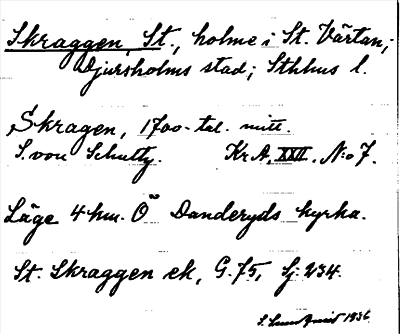 Skraggen, St., holme i St. Värtan,
Djursholms stad; Sthlms l.
Skragen, 1700-tal. mitt.
S. von Schultz. Kr A, XXII, N:o 7.
Läge 4 km. Ö Danderyds kyrka.
St. Skraggen ek, G. 75, Sj: 234.
S. Lundqvist 1936